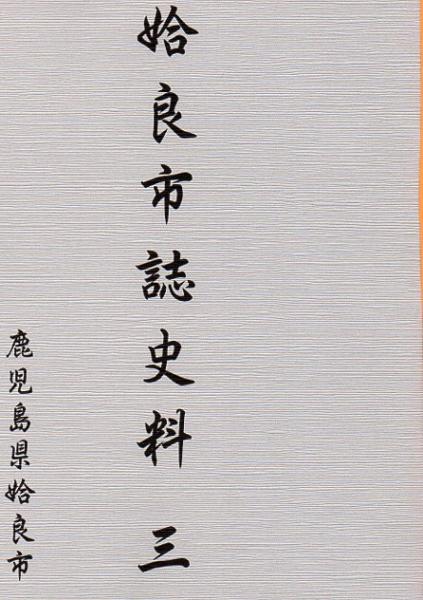 姶良市誌史料 三
鹿児島県姶良市